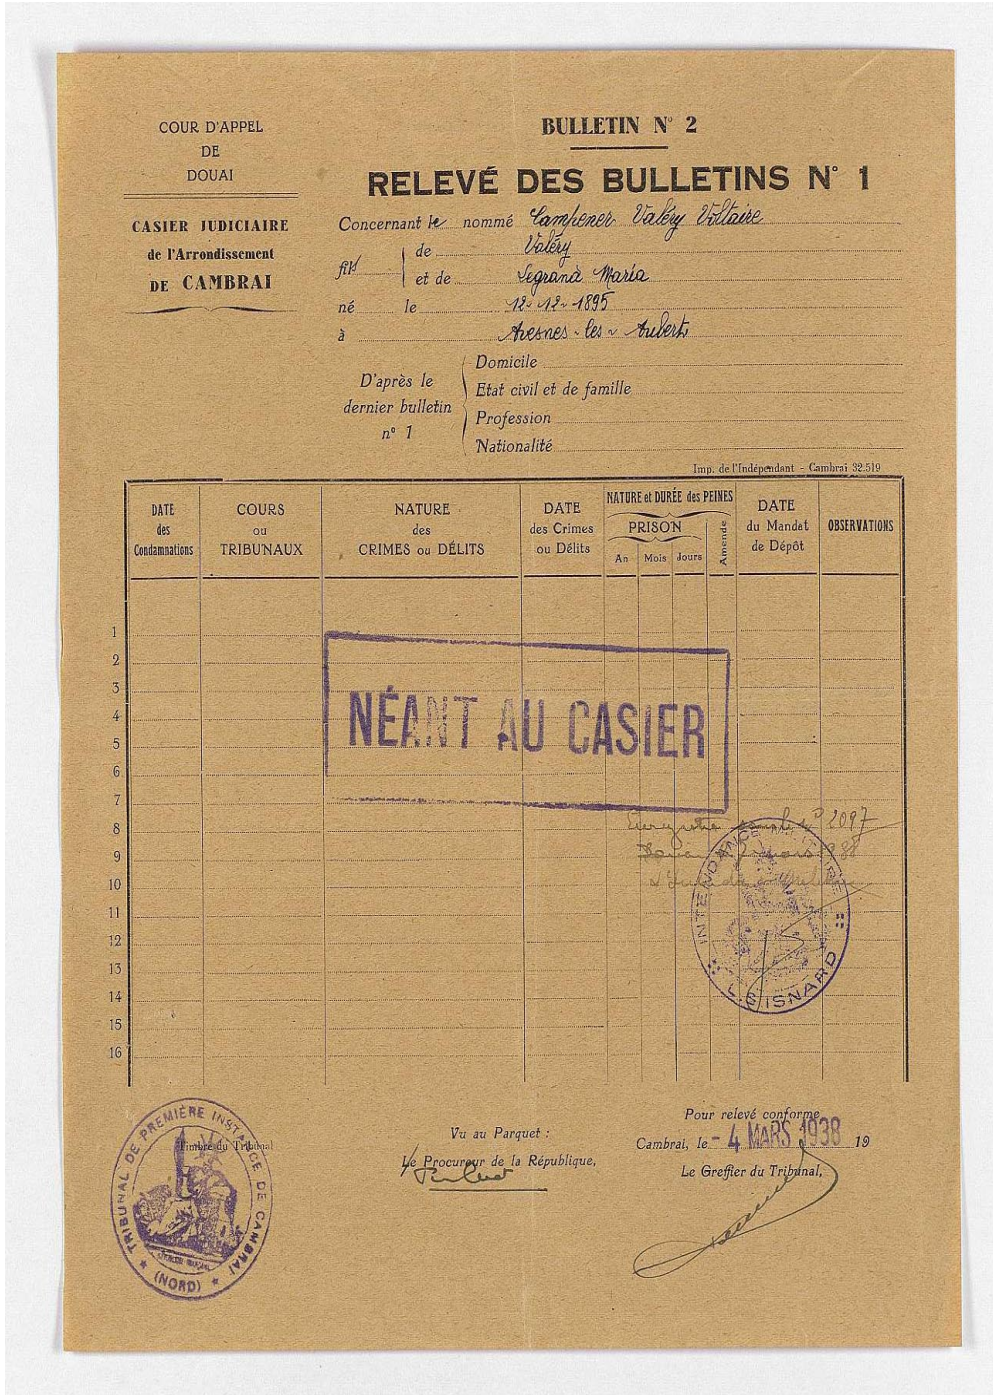 COUR D'APPEL
DE
DOUAI
CASIER JUDICIAIRE
de l'Arrondissement
DE CAMBRAI
BULLETIN N° 2
RELEVÉ DES BULLETINS N° 1
Concernant le nommé Campener Valéry Voltaire
fils de Valéry
et de Legrand Maria
né le 12-12-1895
à Avesnes-les-Aubert
D'après le
dernier bulletin
n° 1
Domicile
Etat civil et de famille
Profession
Nationalité
Imp. de l'Indépendant - Cambrai 32.519
DATE
des
Condamnations
COURS
ou
TRIBUNAUX
NATURE
des
CRIMES ou DÉLITS
DATE
des Crimes
ou Délits
NATURE et DURÉE des PEINES
PRISON
An Mois Jours
Amende
DATE
du Mandat
de Dépôt
OBSERVATIONS
1
2
3
4
5
6
7
8
9
10
11
12
13
14
15
16
NÉANT AU CASIER
2097
INTENDANCE MILITAIRE
L. S. ISNARD
TRIBUNAL DE PREMIÈRE INSTANCE DE CAMBRAI
(NORD)
Timbre du Tribunal
Vu au Parquet :
Le Procureur de la République,
Pour relevé conforme
Cambrai, le - 4 MARS 1938 19
Le Greffier du Tribunal,